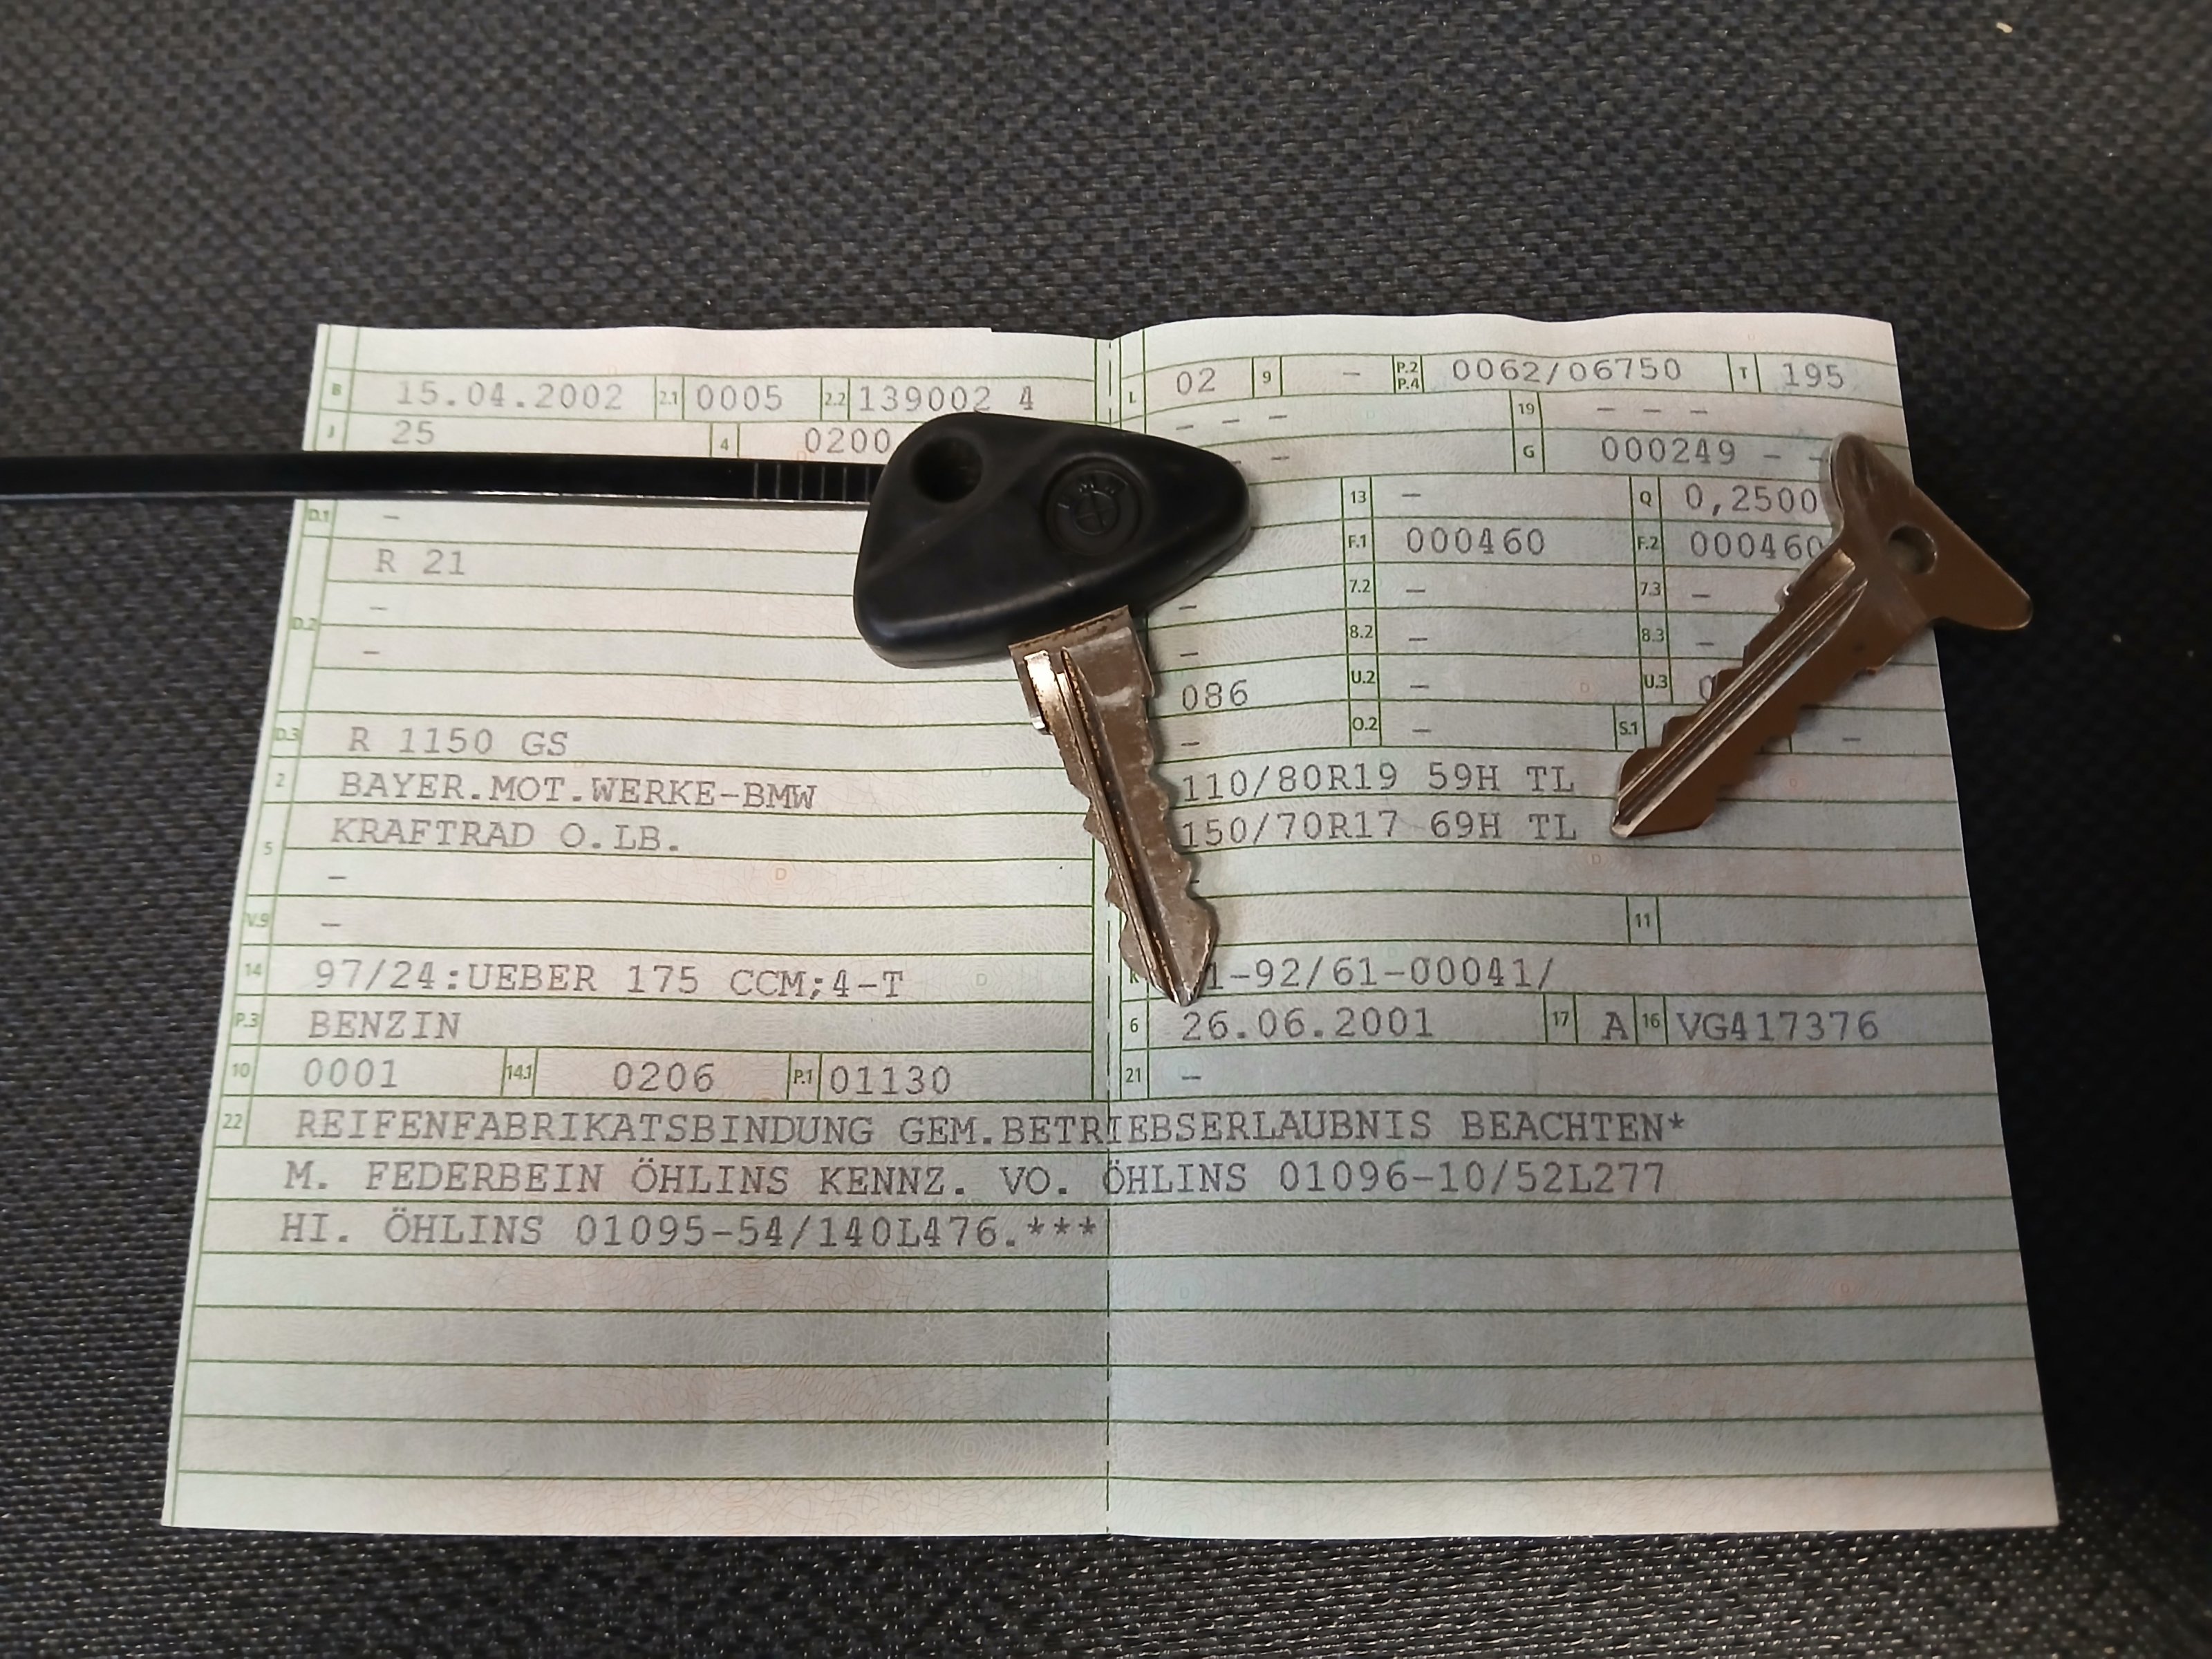 B 15.04.2002 2.1 0005 2.2 139002 4
J 25 4 0200
D.1 -
D.2 R 21
-
-
D.3 R 1150 GS
2 BAYER.MOT.WERKE-BMW
5 KRAFTRAD O.LB.
-
V.9 -
14 97/24:UEBER 175 CCM;4-T
P.3 BENZIN
10 0001 14.1 0206 P.1 01130
L 02 9 - P.2 P.4 0062/06750 T 195
- - - 19 - - -
- - G 000249 - -
13 - Q 0,2500
F.1 000460 F.2 000460
- 7.2 - 7.3 -
- 8.2 - 8.3 -
086 U.2 - U.3
- O.2 - S.1 -
110/80R19 59H TL
150/70R17 69H TL
-
11
K 1-92/61-00041/
6 26.06.2001 17 A 16 VG417376
21 -
22 REIFENFABRIKATSBINDUNG GEM.BETRIEBSERLAUBNIS BEACHTEN*
M. FEDERBEIN ÖHLINS KENNZ. VO. ÖHLINS 01096-10/52L277
HI. ÖHLINS 01095-54/140L476.***